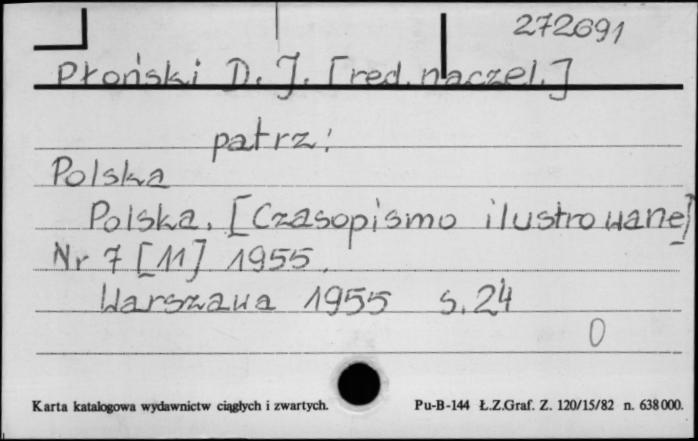 272691
Płoński D. J. [red. naczel.]
patrz:
Polska
Polska. [Czasopismo ilustrowane]
Nr 7 [11] 1955.
Warszawa 1955 s. 24
0
Karta katalogowa wydawnictw ciągłych i zwartych. Pu-B-144 Ł.Z.Graf. Z. 120/15/82 n. 638000.